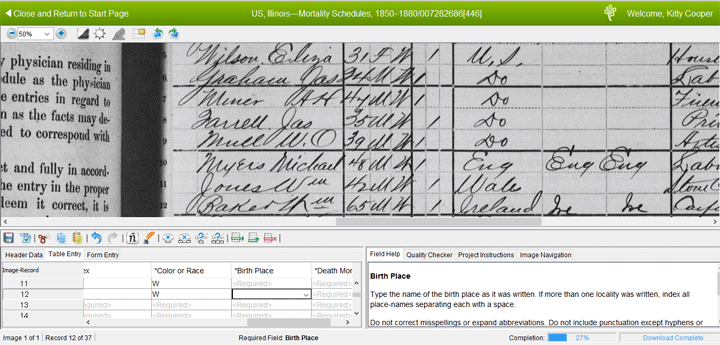 Close and Return to Start Page
US, Illinois—Mortality Schedules, 1850-1880/007282686[446]
Welcome, Kitty Cooper
50%
y physician residing in
dule as the physician
e entries in regard to
n as the facts may de-
ed to correspond with
et and fully in accord-
he entry in the proper
leem it correct, it is
5 Wilson Eliza 31 F W 1 U.S. House
6 Graham Jas 24 M W 1 Do Lab
7 Miner A H 44 M W 1 Do
8 Farrell Jas 35 M W 1 Do Pri
9 Mull W. O 39 M W 1 Do
10 Myers Michael 48 M W 1 Eng Eng Eng Lab
11 Jones Wm 42 M W 1 Wales Stone
12 Baker Wm 65 M W 1 Ireland Ire Ire
Header Data Table Entry Form Entry
Image-Record ex *Color or Race *Birth Place *Death Mor
11 W <Required> <Required>
12 W <Required>
13 equired> <Required> <Required> <Required>
14 equired> <Required> <Required> <Required>
Field Help Quality Checker Project Instructions Image Navigation
Birth Place
Type the name of the birth place as it was written. If more than one locality was written, index all
place-names separating each with a space.
Do not correct misspellings or expand abbreviations. Do not include punctuation except hyphens or
Image 1 of 1 Record 12 of 37 Required Field: Birth Place Completion: 27% Download Complete